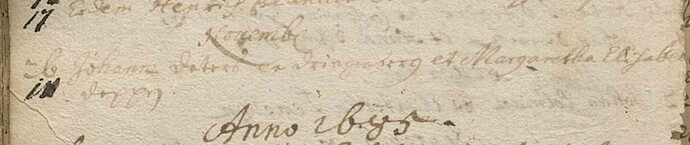 17 Eodem Henrich
Novembr
26 Johann Deters ex Dringenberg et Margaretha Elisabet
Deppen
Anno 1685